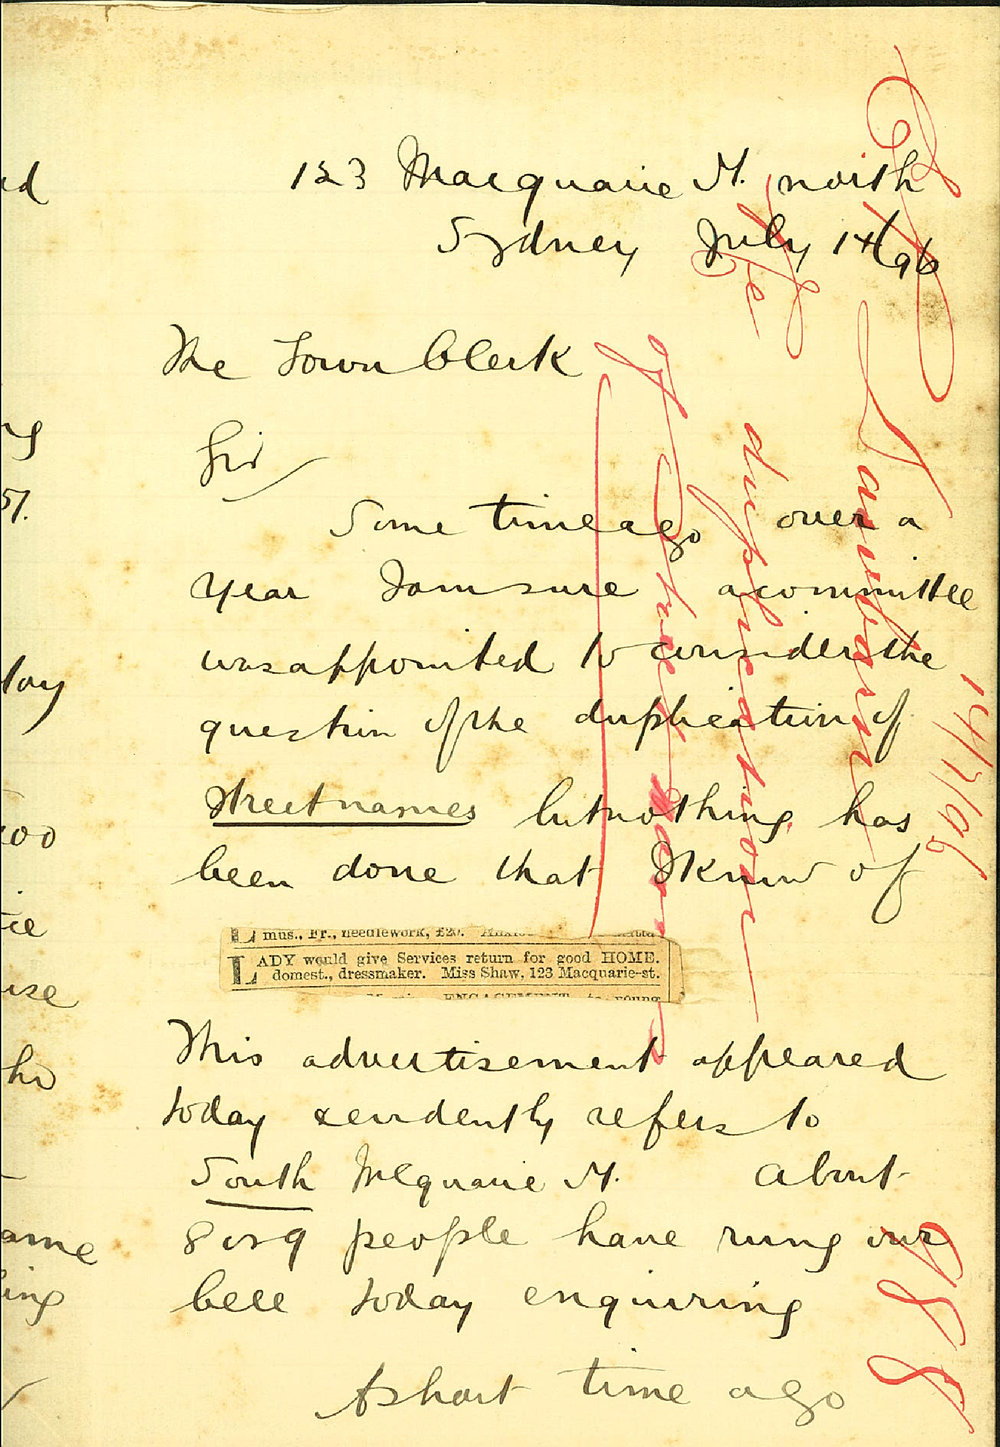 123 Macquarie St. north
Sydney July 14/96
The Town Clerk
Sir
Some time ago over a
year I am sure a committee
was appointed to consider the
question of the duplication of
Street names but nothing has
been done that I know of
mus., Fr., needlework, £20.
LADY would give Services return for good HOME.
domest., dressmaker. Miss Shaw, 123 Macquarie-st.
ENGAGEMENT to young
This advertisement appeared
today & evidently refers to
South McQuarie St. About
8 or 9 people have rung our
bell today enquiring
A short time ago
duplication
of Street
14/7/96
988
ed
ng
51.
day
too
ie
ise
ho
ame
ing